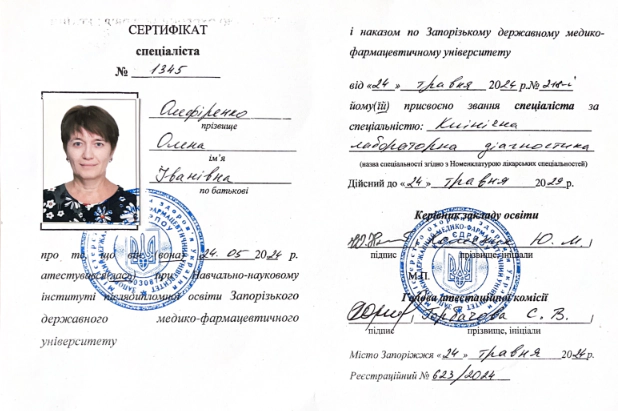 СЕРТИФІКАТ
спеціаліста
№ 1345
Олефіренко
прізвище
Олена
ім'я
Іванівна
по батькові
про те, що він (вона) 24. 05 2024р.
атестувався(лась) при Навчально-науковому
інституті післядипломної освіти Запорізького
державного медико-фармацевтичного
університету
і наказом по Запорізькому державному медико-
фармацевтичному університету
від «24 » травня 2024 р.№
йому(їй) присвоєно звання спеціаліста за
спеціальністю: Клінічна
лабораторна діагностика
(назва спеціальності згідно з Номенклатурою лікарських спеціальностей)
Дійсний до «24 » травня 2029 р.
Керівник закладу освіти
Ю. М.
підпис прізвище, ініціали
М.П.
Голова атестаційної комісії
Горбачова С. В.
підпис прізвище, ініціали
Місто Запоріжжя «24 » травня 2024р.
Реєстраційний № 623/2024